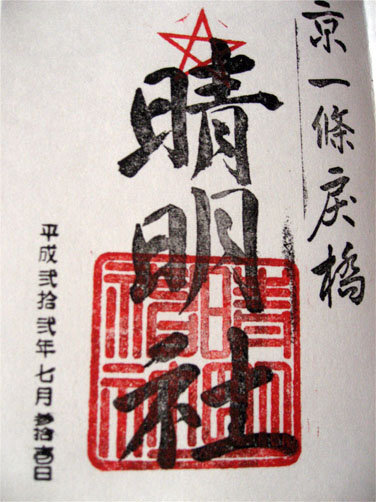 京一條戻橋
晴明社
平成弐拾弐年七月参拾壱日